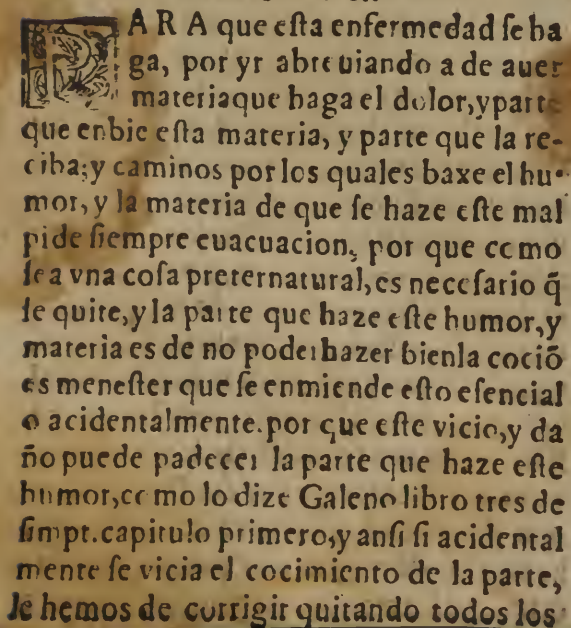 PARA que eſta enfermedad ſe ha
ga, por yr abreuiando a de auer
materiaque haga el dolor,yparte
que enbie eſta materia, y parte que la re-
ciba;y caminos por los quales baxe el hu-
mor, y la materia de que ſe haze eſte mal
pide ſiempre euacuacion, por que como
ſea vna coſa preternatural,es neceſario q̃
ſe quite,y la parte que haze eſte humor,y
materia es de no poder hazer bienla cociõ
es meneſter que ſe enmiende eſto eſencial
o acidentalmente.por que eſte vicio,y da
ño puede padecer la parte que haze eſte
humor,como lo dize Galeno libro tres de
ſimpt.capitulo primero,y anſi ſi acidental
mente ſe vicia el cocimiento de la parte,
le hemos de corrigir quitando todos los